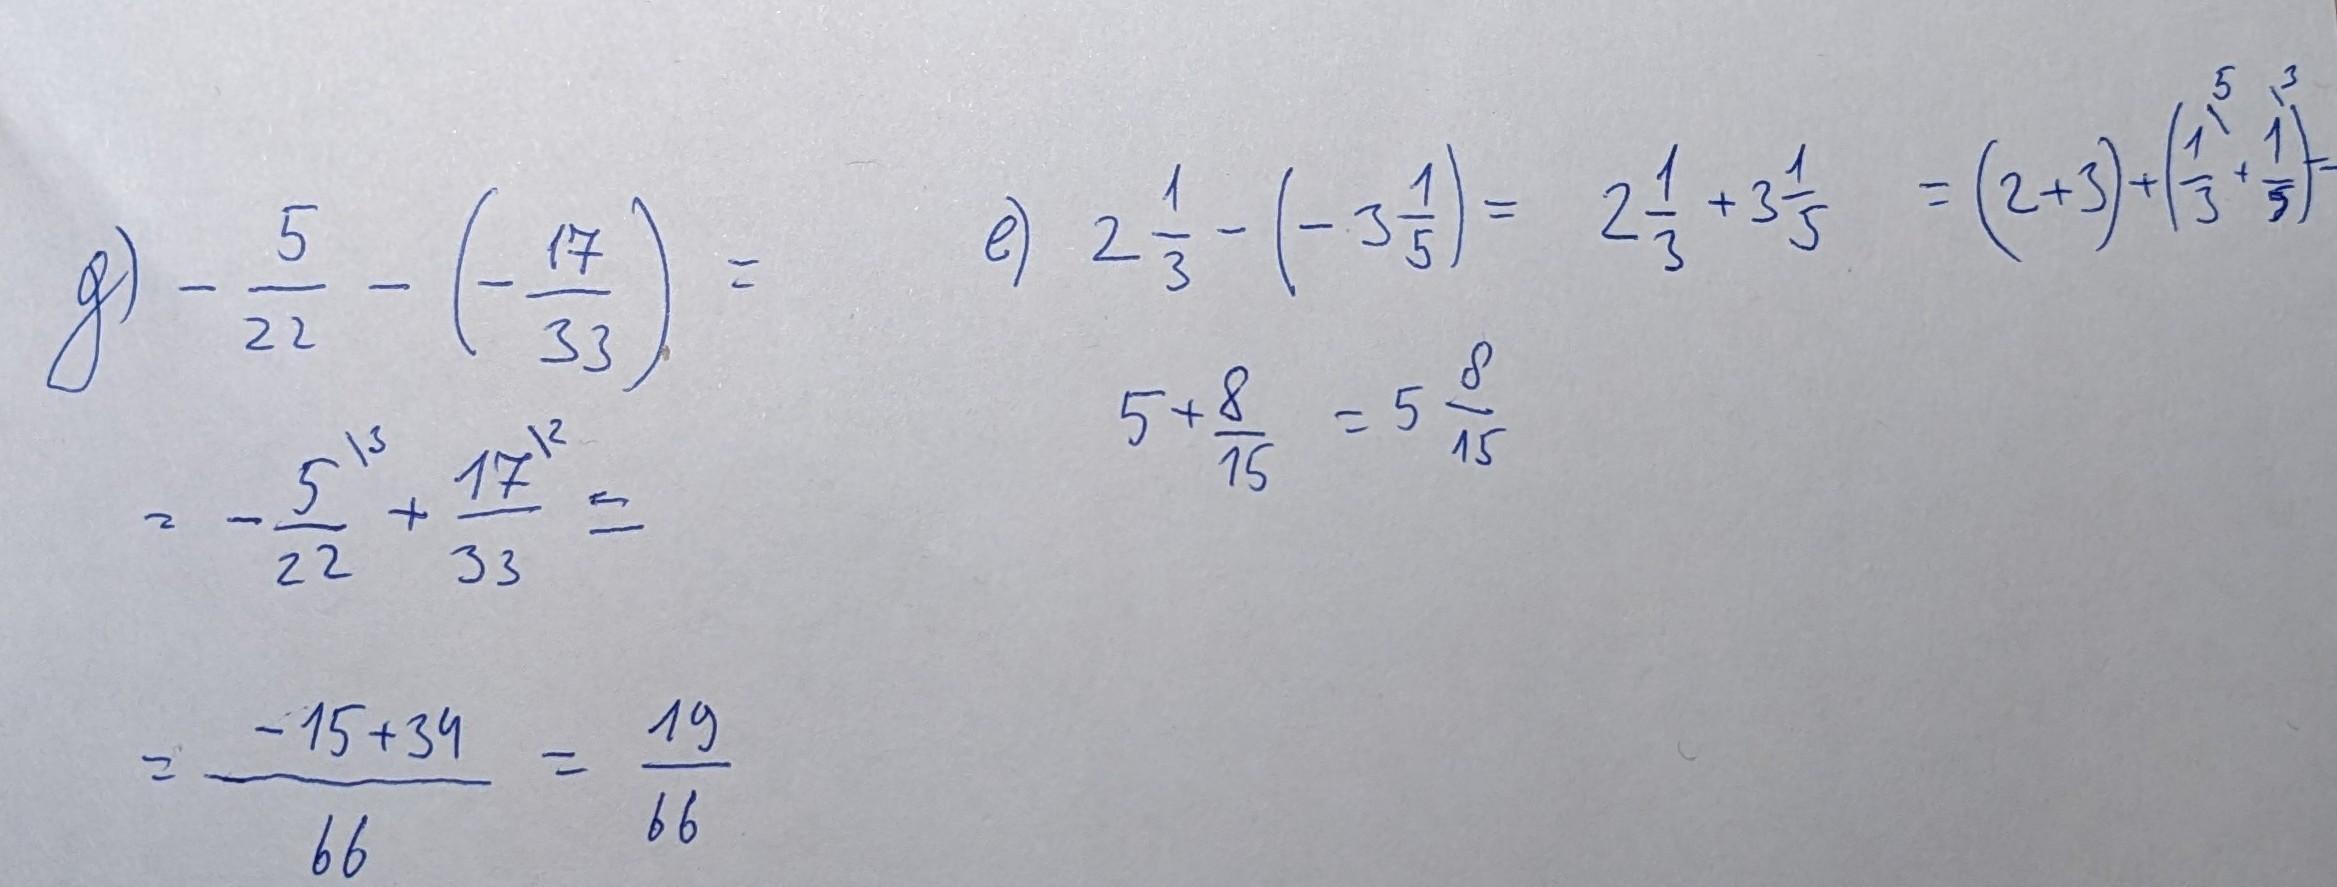 g) - 5/22 - (- 17/33) =
= - 5\3/22 + 17\2/33 =
= -15+34/66 = 19/66
e) 2 1/3 - (- 3 1/5) = 2 1/3 + 3 1/5 = (2+3) + (1\5/3 + 1\3/5) =
5 + 8/15 = 5 8/15